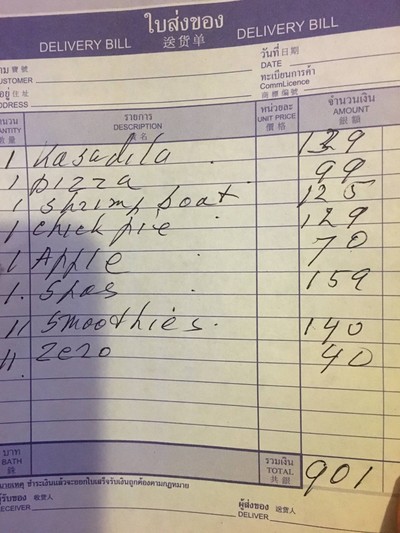 ใบส่งของ
DELIVERY BILL 送货单 DELIVERY BILL
วันที่ 日期
DATE
ทะเบียนการค้า
CommLicence
商標編號
CUSTOMER
ADDRESS
รายการ หน่วยละ จำนวนเงิน
QUANTITY DESCRIPTION UNIT PRICE AMOUNT
數量 貨名 價格 銀額
1 Kasadila 129
1 pizza 99
1 Shrimp boat 125
1 Chick pie 129
1 Apple 70
1. Spas 159
11 Smoothies. 140
11 Zero 40
บาท รวมเงิน
BATH TOTAL 901
銖 共銀
หมายเหตุ ชำระเงินแล้วจะออกใบเสร็จรับเงินถูกต้องตามกฎหมาย
ผู้รับของ 收貨人 ผู้ส่งของ 送貨人
RECEIVER DELIVER